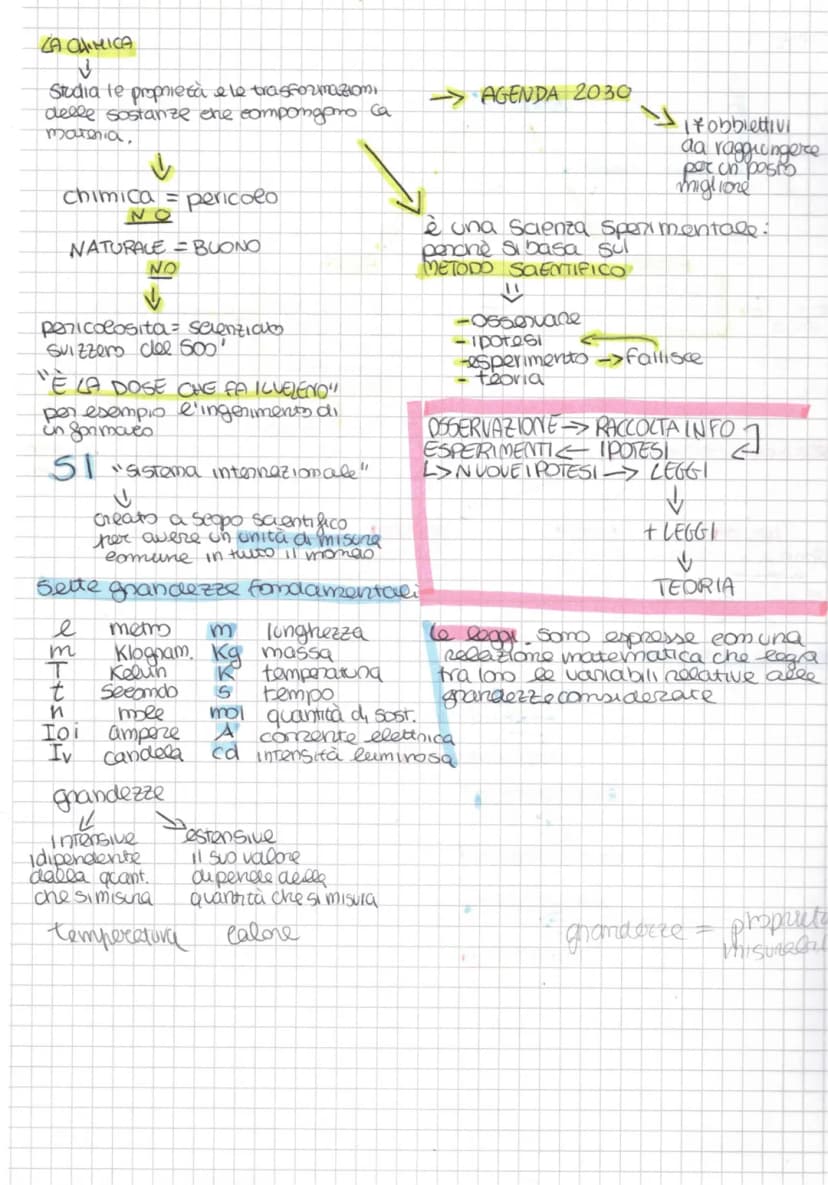 LA CHIMICA
↓
Studia le proprietà e le trasformazioni
delle sostanze che compongono la
materia.
→ AGENDA 2030
17 obbiettivi
da raggiungere
per un posto
migliore
chimica = pericolo
NO
NATURALE = BUONO
NO
pericolosità = scienziato
svizzero del 500'
"È LA DOSE CHE FA IL VELENO"
per esempio l'ingerimento di
un farmaco
è una scienza sperimentale:
perché si basa sul
METODO SCIENTIFICO
- osservare
- ipotesi
- esperimento → fallisce
- teoria
OSSERVAZIONE → RACCOLTA INFO
ESPERIMENTI ← IPOTESI
↳ NUOVE IPOTESI → LEGGI
↓
+ LEGGI
↓
TEORIA
SI "sistema internazionale"
↓
creato a scopo scientifico
per avere un unità di misura
comune in tutto il mondo
Sette grandezze fondamentali
l metro m lunghezza
m Klogram. Kg massa
T Kelvin K temperatura
t secondo s tempo
n mole mol quantità di sost.
I o i ampere A corrente elettrica
Iv candela cd intensità luminosa
Le leggi sono espresse con una
relazione matematica che lega
tra loro le variabili relative alle
grandezze considerate
grandezze
intensive
idipendente
dalla quant.
che si misura
temperatura
estensive
il suo valore
dipende della
quantità che si misura
calore
grandezze = propriet
misurabi